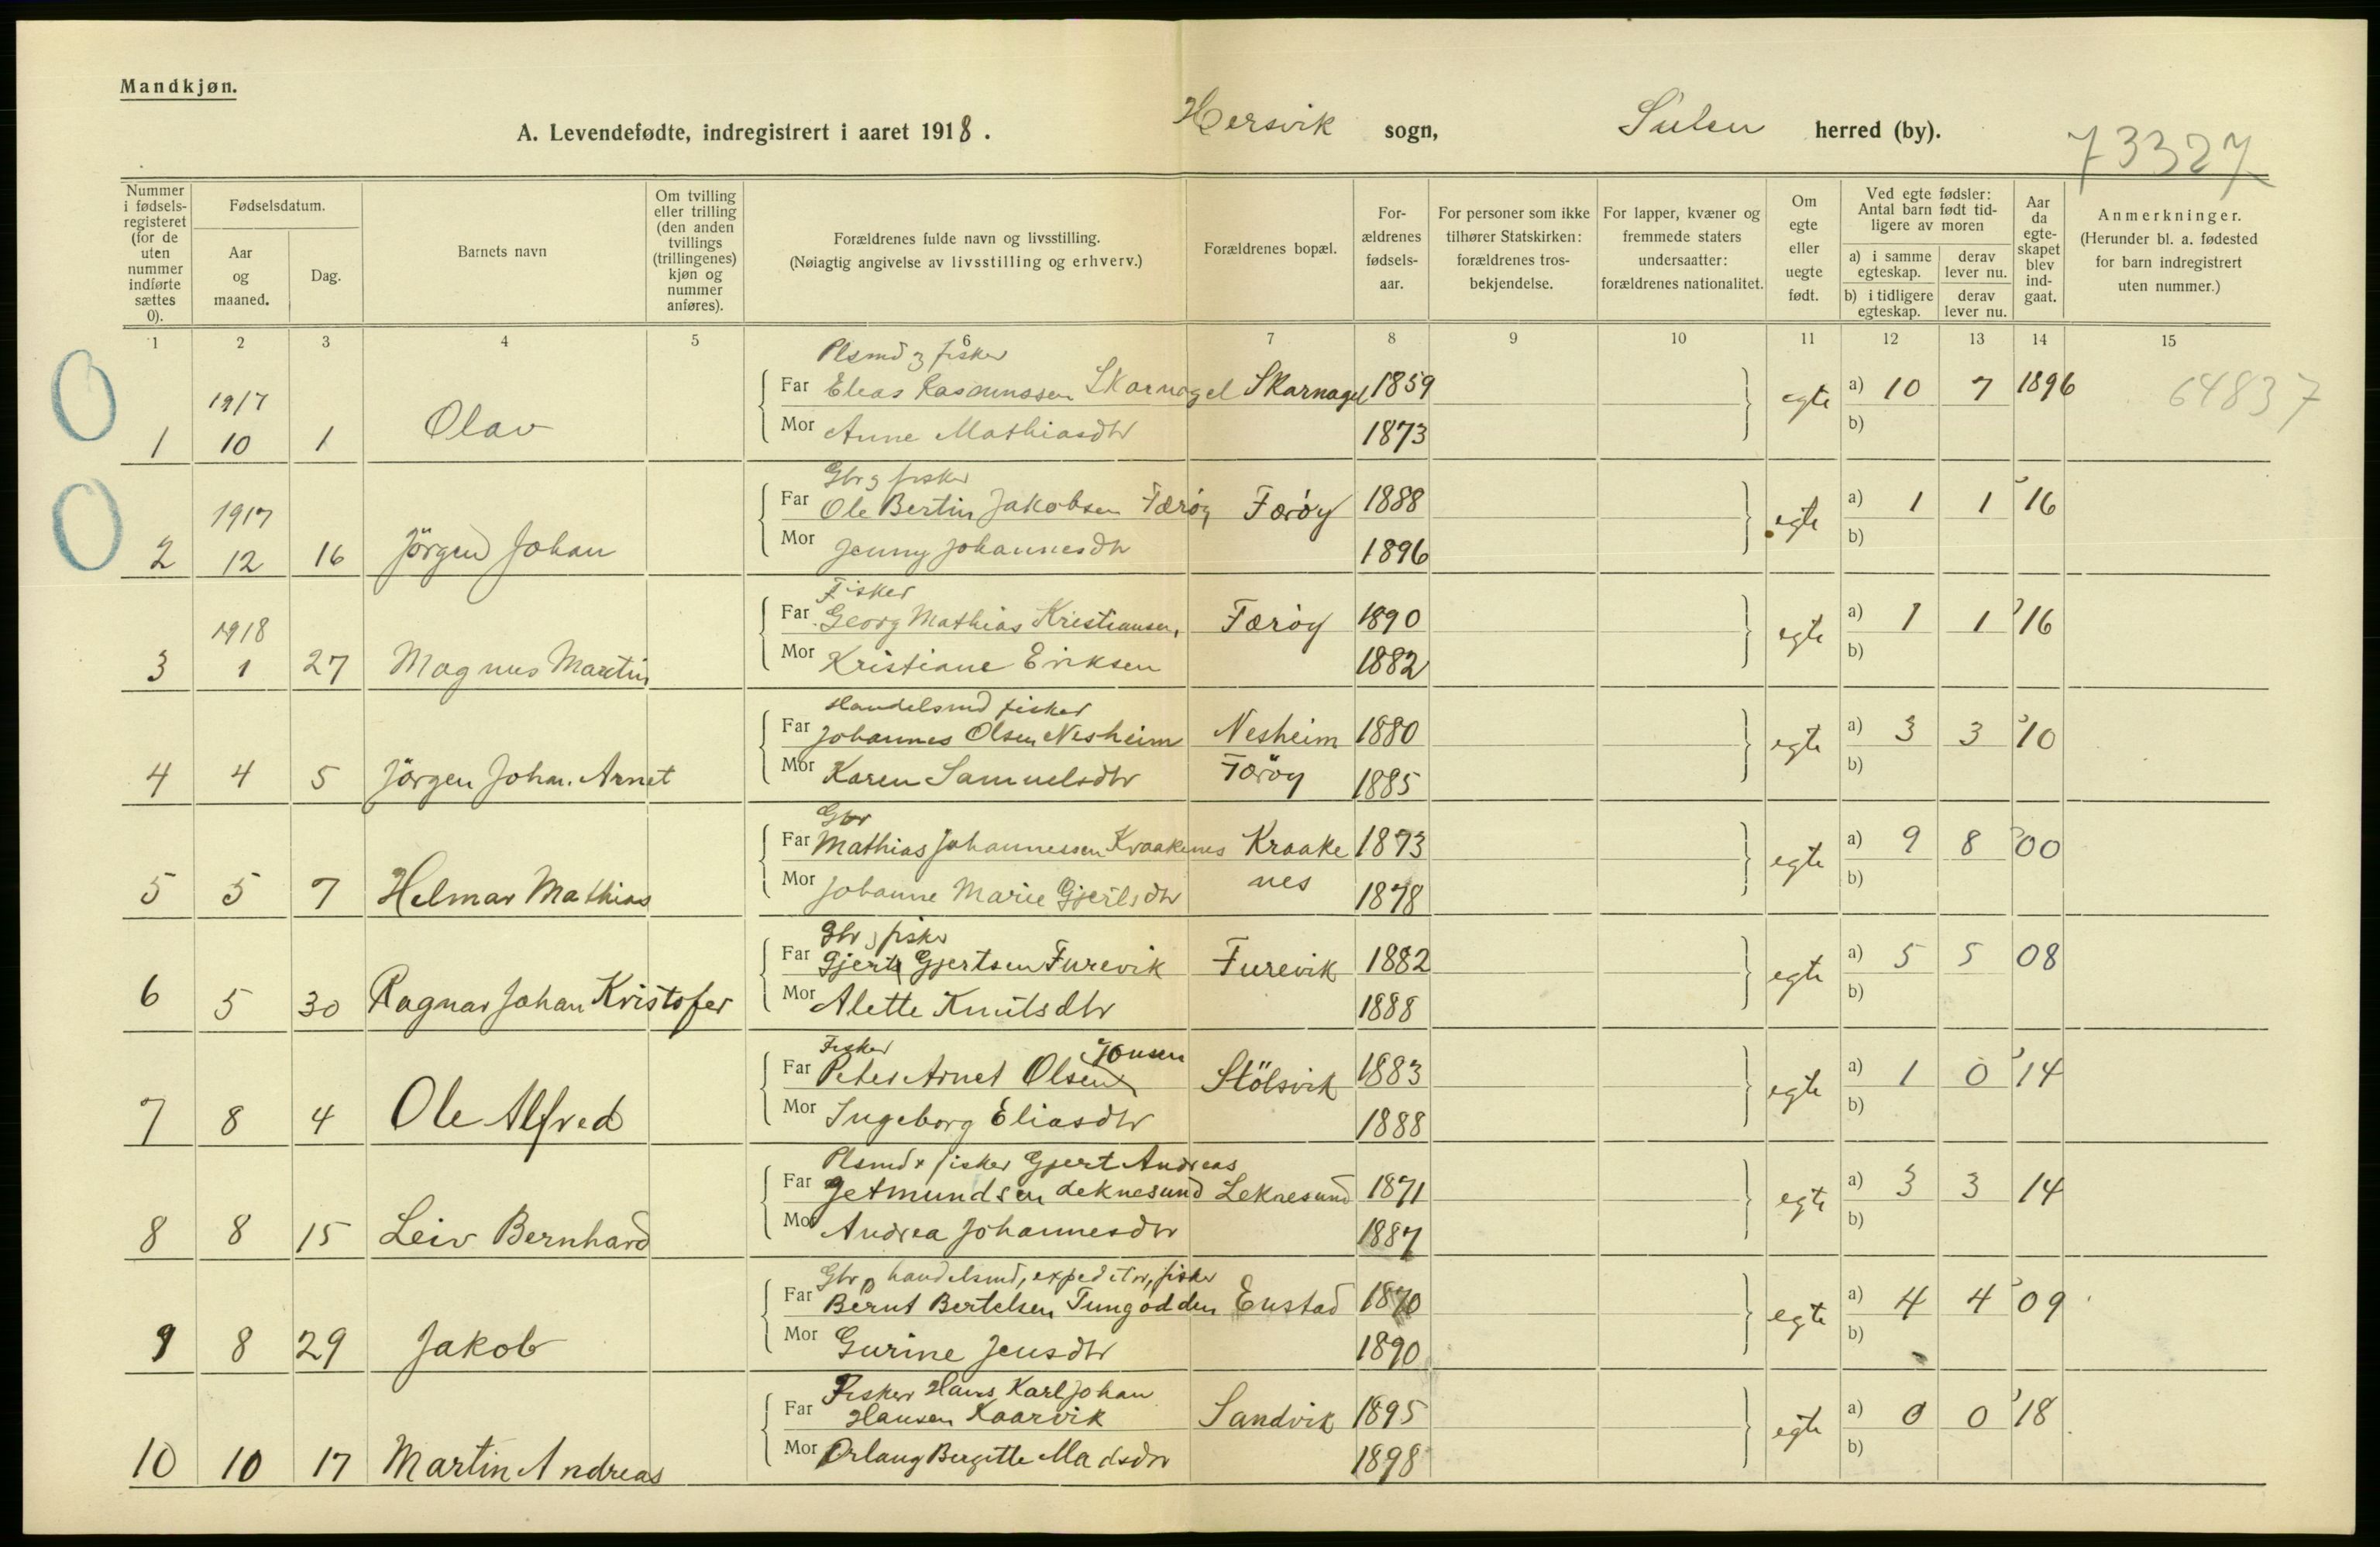 Mandkjøn.
A. Levendefødte, indregistrert i aaret 1918. Hersvik sogn, Sulen herred (by).
73327
Nummer i fødselsregisteret (for de uten nummer indførte sættes 0).
Fødselsdatum.
Aar og maaned.
Dag.
Barnets navn
Om tvilling eller trilling (den anden tvillings (trillingenes) kjøn og nummer anføres).
Forældrenes fulde navn og livsstilling.
(Nøiagtig angivelse av livsstilling og erhverv.)
Forældrenes bopæl.
Forældrenes fødselsaar.
For personer som ikke tilhører Statskirken: forældrenes trosbekjendelse.
For lapper, kvæner og fremmede staters undersaatter: forældrenes nationalitet.
Om egte eller uegte født.
Ved egte fødsler: Antal barn født tidligere av moren
a) i samme egteskap. derav lever nu.
b) i tidligere egteskap. derav lever nu.
Aar da egteskapet blev indgaat.
Anmerkninger.
(Herunder bl. a. fødested for barn indregistrert uten nummer.)
1 2 3 4 5 6 7 8 9 10 11 12 13 14 15
0
Plsmd og fisker
1917 Far Elias Rasmussen Skarnagel Skarnagel 1859 egte a) 10 7 1896 64837
1 10 1 Olav Mor Anne Mathiasdtr 1873 b)
0
Gbr og fisker
1917 Far Ole Bertin Jakobsen Færöy Færöy 1888 egte a) 1 1 '16
2 12 16 Jörgen Johan Mor Jenny Johannesdtr 1896 b)
Fisker
1918 Far Georg Mathias Kristiansen, Færöy 1890 egte a) 1 1 '16
3 1 27 Magnus Martin Mor Kristiane Eriksen 1882 b)
Handelsmd fisker
Far Johannes Olsen Nesheim Nesheim 1880 egte a) 3 3 '10
4 4 5 Jörgen Johan. Arnet Mor Karen Samuelsdtr Færöy 1885 b)
Gbr
Far Mathias Johannessen Kraakenes Kraake 1873 egte a) 9 8 '00
5 5 7 Helmar Mathias Mor Johanne Marie Gjertsdtr nes 1878 b)
Gbr, fisker
Far Gjert Gjertsen Furevik Furevik 1882 egte a) 5 5 08
6 5 30 Ragnar Johan Kristofer Mor Alette Knutsdtr 1888 b)
Fisker Jonsen
Far Peter Arnet Olsen Stölsvik 1883 egte a) 1 0 '14
7 8 4 Ole Alfred Mor Ingeborg Eliasdtr 1888 b)
Plsmd + fisker Gjert Andreas
Far Getmundsen Leknesund Leknesund 1871 egte a) 3 3 14
8 8 15 Leiv Bernhard Mor Andrea Johannesdtr 1887 b)
Gbr, handelsmd, expeditör, fisker
Far Bernt Bertelsen Tungodden Enstad 1870 egte a) 4 4 '09
9 8 29 Jakob Mor Gurine Jensdtr 1890 b)
Fisker Hans Karl Johan
Far Hansen Kaarvik Sandvik 1895 egte a) 0 0 '18
10 10 17 Martin Andreas Mor Orlaug Bergitte Madsdtr 1898 b)